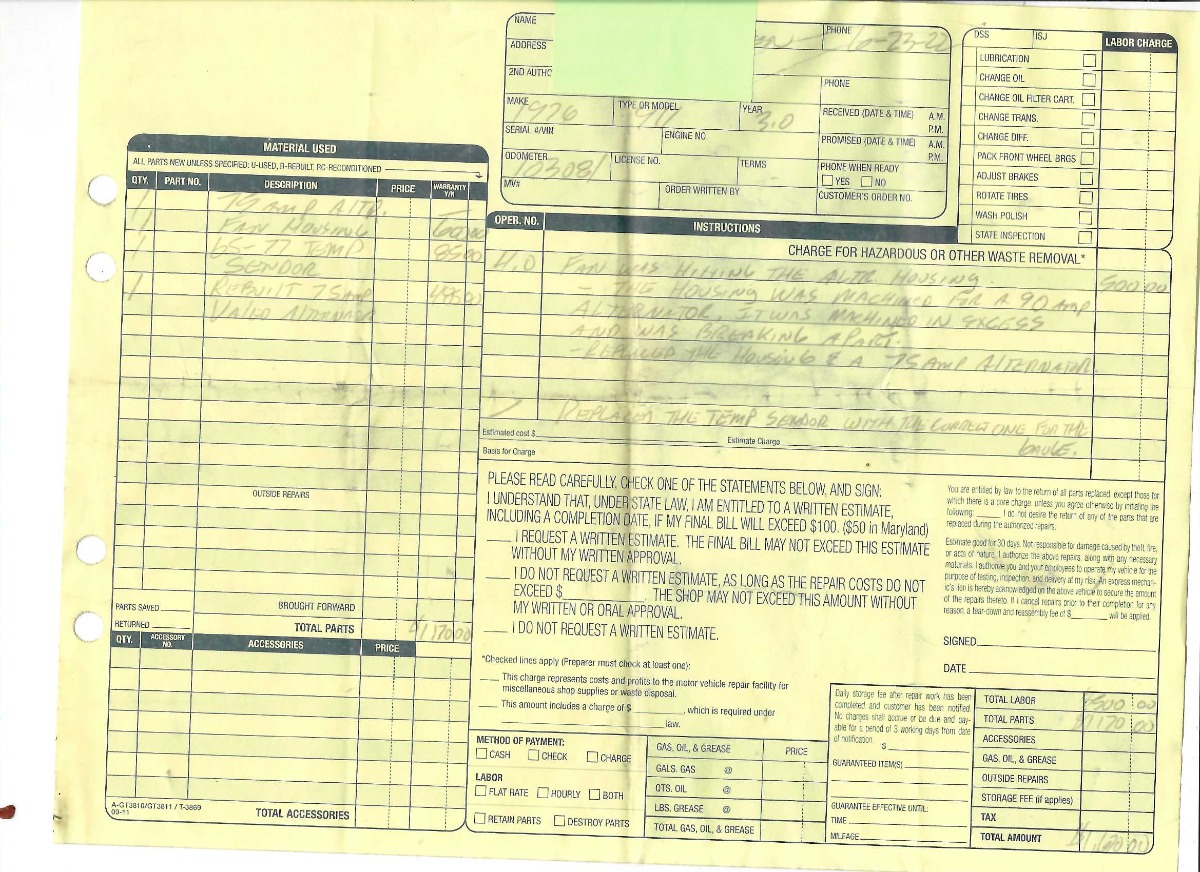 NAME
PHONE 6-23-22
ADDRESS
2ND AUTHO
PHONE
MAKE 1976 TYPE OR MODEL 911 YEAR 3.0
RECEIVED (DATE & TIME) A.M. P.M.
SERIAL #/VIN ENGINE NO
PROMISED (DATE & TIME) A.M. P.M.
ODOMETER 103081 LICENSE NO. TERMS
PHONE WHEN READY
YES NO
MV# ORDER WRITTEN BY CUSTOMER'S ORDER NO.
DSS ISJ LABOR CHARGE
LUBRICATION
CHANGE OIL
CHANGE OIL FILTER CART.
CHANGE TRANS.
CHANGE DIFF.
PACK FRONT WHEEL BRGS
ADJUST BRAKES
ROTATE TIRES
WASH POLISH
STATE INSPECTION
MATERIAL USED
ALL PARTS NEW UNLESS SPECIFIED: U-USED, R-REBUILT, RC-RECONDITIONED
QTY. PART NO. DESCRIPTION PRICE WARRANTY Y/N
1 75 AMP ALTR.
1 FAN HOUSING 600.00
1 65-77 TEMP 85.00
SENDOR
1 REBUILT 75 AMP 485.00
VALEO ALTERNATOR
OUTSIDE REPAIRS
PARTS SAVED
BROUGHT FORWARD
RETURNED
TOTAL PARTS $1170.00
QTY. ACCESSORY NO. ACCESSORIES PRICE
A-GT3810/GT3811 / T-3869
09-11
TOTAL ACCESSORIES
OPER. NO. INSTRUCTIONS
CHARGE FOR HAZARDOUS OR OTHER WASTE REMOVAL*
4.0 FAN WAS HITTING THE ALTR HOUSING 500.00
- THE HOUSING WAS MACHINED FOR A 90 AMP
ALTERNATOR, IT WAS MACHINED IN EXCESS
AND WAS BREAKING APART.
- REPLACED THE HOUSING & A 75 AMP ALTERNATOR.
REPLACED THE TEMP SENDOR WITH THE CORRECT ONE FOR THE
GAUGE.
Estimated cost $ Estimate Charge
Basis for Charge
PLEASE READ CAREFULLY, CHECK ONE OF THE STATEMENTS BELOW, AND SIGN:
I UNDERSTAND THAT, UNDER STATE LAW, I AM ENTITLED TO A WRITTEN ESTIMATE,
INCLUDING A COMPLETION DATE, IF MY FINAL BILL WILL EXCEED $100. ($50 in Maryland)
I REQUEST A WRITTEN ESTIMATE. THE FINAL BILL MAY NOT EXCEED THIS ESTIMATE
WITHOUT MY WRITTEN APPROVAL.
I DO NOT REQUEST A WRITTEN ESTIMATE, AS LONG AS THE REPAIR COSTS DO NOT
EXCEED $ THE SHOP MAY NOT EXCEED THIS AMOUNT WITHOUT
MY WRITTEN OR ORAL APPROVAL.
I DO NOT REQUEST A WRITTEN ESTIMATE.
*Checked lines apply (Preparer must check at least one):
This charge represents costs and profits to the motor vehicle repair facility for
miscellaneous shop supplies or waste disposal.
This amount includes a charge of $ , which is required under
law.
You are entitled by law to the return of all parts replaced, except those for
which there is a core charge, unless you agree otherwise by initialing the
following: I do not desire the return of any of the parts that are
replaced during the authorized repairs.
Estimate good for 30 days. Not responsible for damage caused by theft, fire,
or acts of nature. I authorize the above repairs, along with any necessary
materials. I authorize you and your employees to operate my vehicle for the
purpose of testing, inspection, and delivery at my risk. An express mechan-
ic's lien is hereby acknowledged on the above vehicle to secure the amount
of the repairs thereto. If I cancel repairs prior to their completion for any
reason, a tear-down and reassembly fee of $ will be applied.
SIGNED
DATE
METHOD OF PAYMENT:
CASH CHECK CHARGE
LABOR
FLAT RATE HOURLY BOTH
RETAIN PARTS DESTROY PARTS
GAS, OIL, & GREASE PRICE
GALS. GAS @
QTS. OIL @
LBS. GREASE @
TOTAL GAS, OIL, & GREASE
Daily storage fee after repair work has been
completed and customer has been notified.
No charges shall accrue or be due and pay-
able for a period of 3 working days from date
of notification.
$
GUARANTEED ITEM(S)
GUARANTEE EFFECTIVE UNTIL:
TIME
MILEAGE
TOTAL LABOR 500.00
TOTAL PARTS $1170.00
ACCESSORIES
GAS, OIL, & GREASE
OUTSIDE REPAIRS
STORAGE FEE (if applies)
TAX
TOTAL AMOUNT $1,670.00